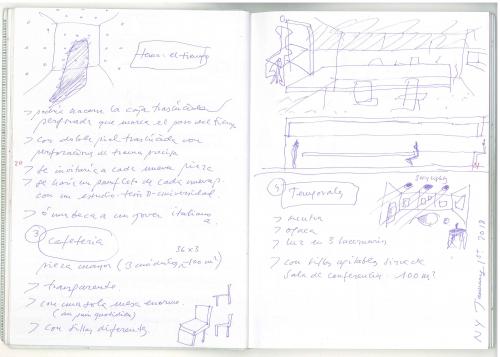 tema: el tiempo
> podría hacerse la caja traslúcida
perforada que marca el paso del tiempo
> con doble piel traslúcida con
perforaciones de trama precisa
20
> se invitaría a cada nueva pieza
> se haría un de cada nueva
con un estudio universidad
> o una beca a un joven italiano
a.
3
cafetería
36 x 3
pieza mayor (3 módulos, ~ 100 m²)
> transparente
> con una sola mesa enorme.
(de pan quotidien)
> con sillas diferentes
4
Temporales
> neutra
> opaca
> luz en 3 lucernarios
> con sillas apilables sirve de
sala de conferencias. 100 m²
NY January 1st 2018